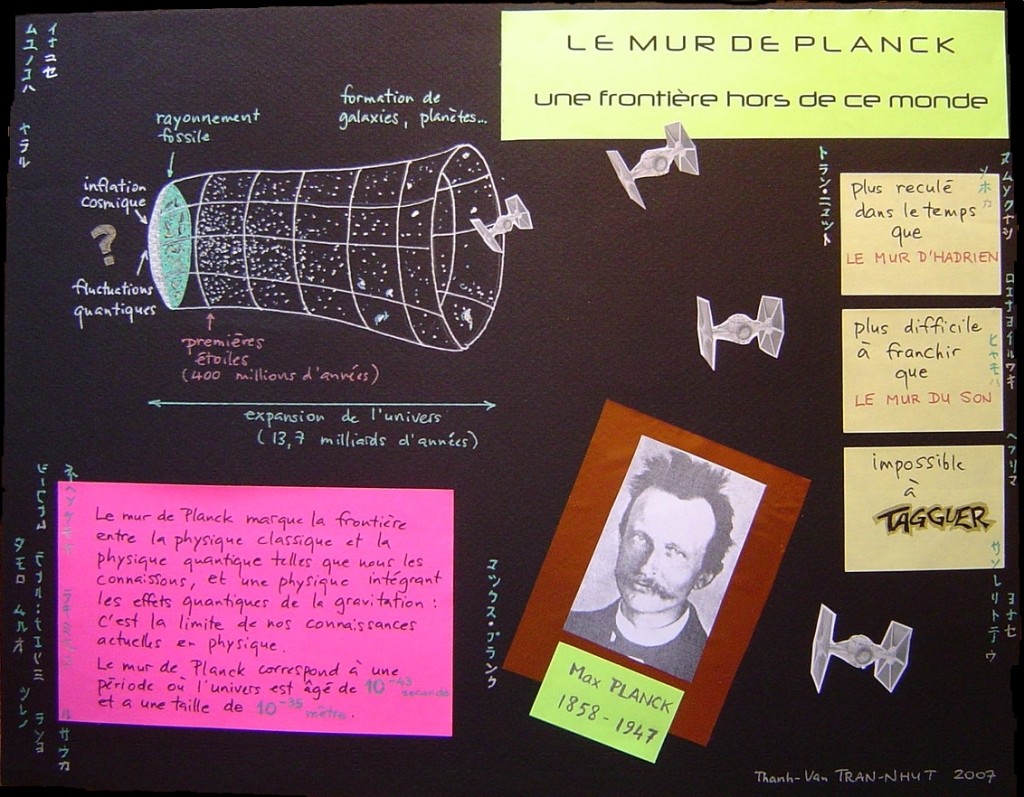 LE MUR DE PLANCK
une frontière hors de ce monde
formation de
galaxies, planètes...
rayonnement
fossile
inflation
cosmique
?
fluctuations
quantiques
premières
étoiles
(400 millions d'années)
expansion de l'univers
(13,7 milliards d'années)
plus reculé
dans le temps
que
LE MUR D'HADRIEN
plus difficile
à franchir
que
LE MUR DU SON
impossible
à
TAGGUER
Le mur de Planck marque la frontière
entre la physique classique et la
physique quantique telles que nous les
connaissons, et une physique intégrant
les effets quantiques de la gravitation :
C'est la limite de nos connaissances
actuelles en physique.
Le mur de Planck correspond à une
période où l'univers est âgé de 10⁻⁴³ seconde
et a une taille de 10⁻³⁵ mètre.
マックス・プランク
Max PLANCK
1858 - 1947
トラン・ニュット
Thanh-Van TRAN-NHUT 2007